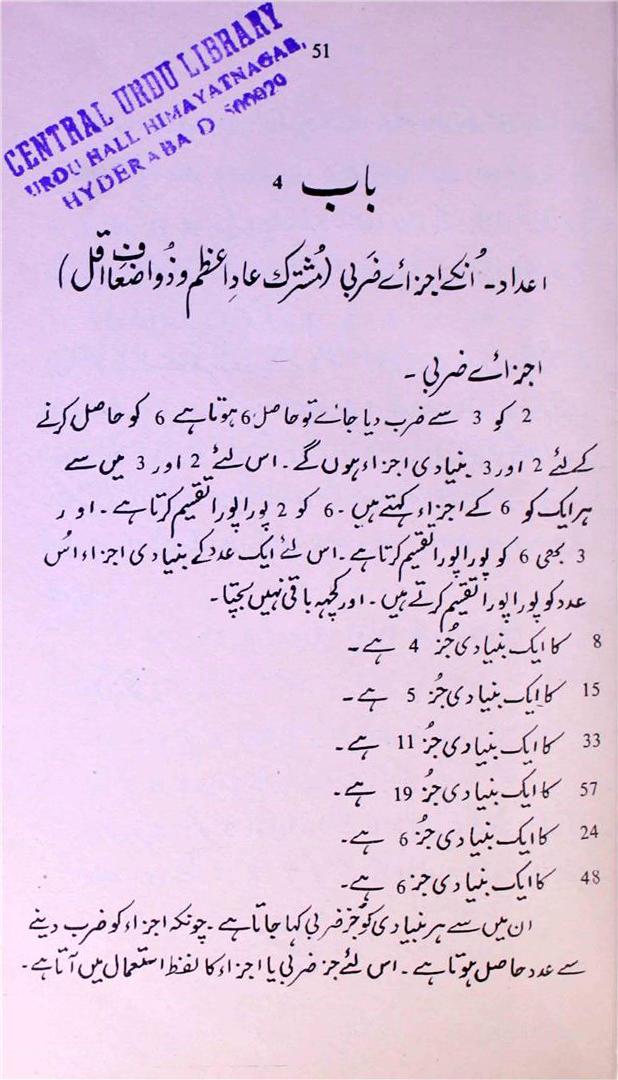 CENTRAL URDU LIBRARY
URDU HALL HIMAYATNAGAR,
HYDERABAD 500029
51
باب 4
اعداد۔ اُنکے اجزائے ضَربی (مُشترک عادِ اعظم و ذُو اضعاف اقل)
اجزائے ضربی ۔
2 کو 3 سے ضرب دیا جائے تو حاصل 6 ہوتا ہے 6 کو حاصل کرنے
کے لئے 2 اور 3 بنیادی اجزاء ہوں گے۔ اس لئے 2 اور 3 میں سے
ہر ایک کو 6 کے اجزاء کہتے ہیں ۔ 6 کو 2 پورا پورا تقسیم کرتا ہے ۔ اور
3 بھی 6 کو پورا پورا تقسیم کرتا ہے۔ اس لئے ایک عدد کے بنیادی اجزاء اُس
عدد کو پورا پورا تقسیم کرتے ہیں ۔ اور کچھہ باقی نہیں بچتا۔
8 کا ایک بنیادی جُز 4 ہے۔
15 کا ایک بنیادی جُز 5 ہے ۔
33 کا ایک بنیادی جُز 11 ہے ۔
57 کا ایک بنیادی جُز 19 ہے ۔
24 کا ایک بنیادی جُز 6 ہے۔
48 کا ایک بنیادی جز 6 ہے۔
ان میں سے ہر بنیادی کو جُز ضربی کہا جاتا ہے ۔ چونکہ اجزاء کو ضرب دینے
سے عدد حاصل ہوتا ہے ۔ اس لئے جز ضربی یا اجزاء کا لفظ استعمال میں آتا ہے۔